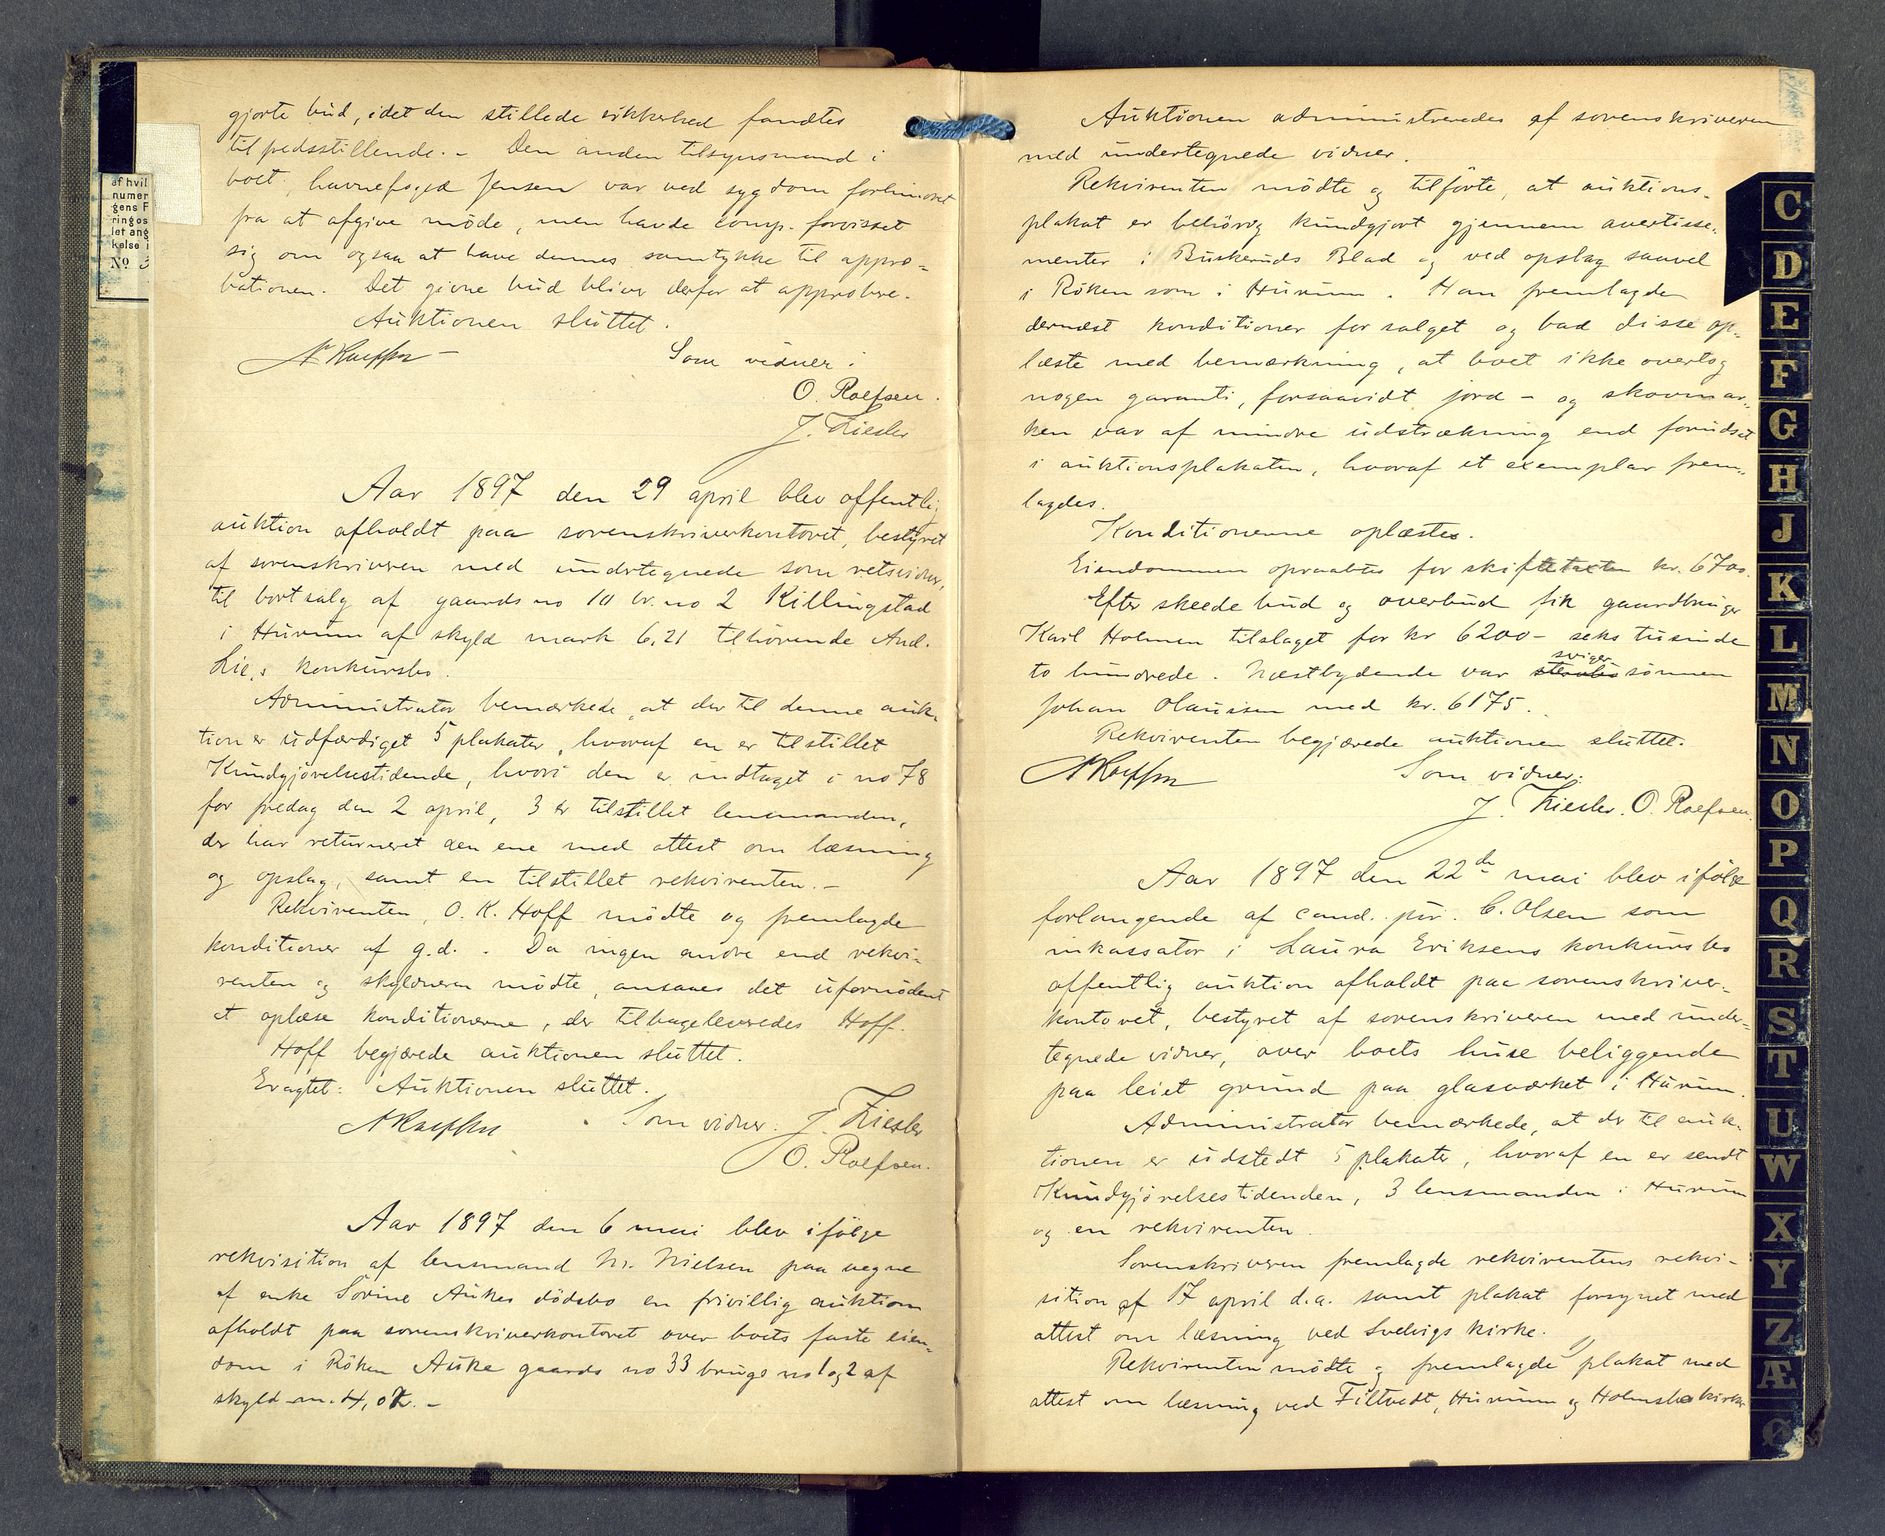 gjorte bud, idet den stillede sikkerhed fandtes
tilfredsstillende. - Den anden tilsynsmand i
boet, havnefoged Jensen var ved sygdom forhindret
fra at afgive möde, men havde comp. forvisset
sig om ogsaa at have dennes samtykke til appro=
bationen. Det givne bud bliver derfor at approbere.
Auktionen sluttet.
Som vidner:
O. Roefsen.
J. Ziesler
Aar 1897 den 29 april blev offentlig
auktion afholdt paa sorenskriverkontoret, bestyret
af sorenskriveren med undertegnede som retsvidner,
til bortsalg af gaards no 10 br. no 2 Killingstad
i Hurum af skyld mark 6,21 tilhörende And.
Lie,s konkursbo.
Administrator bemærkede, at der til denne auk-
tion er udfærdiget 5 plakater, hvoraf en er tilstillet
Kundgjörelsestidende, hvori den er indtaget i no 78
for fredag den 2 april, 3 er tilstillet lensmanden,
der har returneret den ene med attest om læsning
og opslag, samt en tilstillet rekvirenten. -
Rekvirenten, O. K. Hoff mödte og fremlagde
konditioner af g.d. . Da ingen andre end rekvi-
renten og skyldneren mödte, ansaaes det ufornödent
at oplæse konditionerne, der tilbageleveredes Hoff.
Hoff begjærede auktionen sluttet.
Eragtet: Auktionen sluttet.
Som vidner: J. Ziesler
O. Roefsen.
Aar 1897 den 6 mai blev ifölge
rekvisition af lensmand M. Nielsen paa vegne
af enke Sörine Aukes dödsbo en frivillig auktion
afholdt paa sorenskriverkontoret over boets faste eien-
dom i Röken Auke gaards no 33 brugs no 1 og 2 af
skyld m. 4,07. -
af hvil
numer
gens F
ringos
let ang
kelse i
No 3
Auktionen administreredes af sorenskriveren
med undertegnede vidner.
Rekvirenten mödte og tilförte, at auktions-
plakat er behörig kundgjort gjennem avertisse-
menter i Buskeruds Blad og ved opslag saavel
i Röken som i Hurum. Han fremlagde
dernæst konditioner for salget og bad disse op-
læste med bemærkning, at boet ikke overtog
nogen garanti, forsaavidt jord - og skovmar-
ken var af mindre udstrækning end forudsat
i auktionsplakaten, hvoraf et exemplar frem-
lagdes.
Konditionerne oplæstes.
Eiendommen opraabtes for skiftetaxten kr. 6700.
Efter skeede bud og overbud fik gaardbruger
Karl Holmen tilslaget for kr 6200 - seks tusinde
to hundrede. Næstbydende var sviger sönnen
Johan Olaussen med kr. 6175.
Rekvirenten begjærede auktionen sluttet.
Som vidner:
J. Ziesler. O. Roefsen.
Aar 1897 den 22de mai blev ifölge
forlangende af cand. jur. C. Olsen som
inkassator i Laura Eriksens konkursbo
offentlig auktion afholdt paa sorenskriver-
kontoret, bestyret af sorenskriveren med under-
tegnede vidner, over boets huse beliggende
paa leiet grund paa glasværket i Hurum.
Administrator bemærkede, at der til auk-
tionen er udstedt 5 plakater, hvoraf en er sendt
Kundgjörelsestidenden, 3 lensmanden i Hurum
og en rekvirenten.
Sorenskriveren fremlagde rekvirentens rekvi-
sition af 17 april d.a. samt plakat forsynet med
attest om læsning ved Svelvigs kirke.
Rekvirenten mödte og fremlagde plakat med
attest om læsning ved Filtvedt, Hurum og Holmsbo kirker
C
D
E
F
G
H
J
K
L
M
N
O
P
Q
R
S
T
U
W
X
Y
Z
Æ
Ø